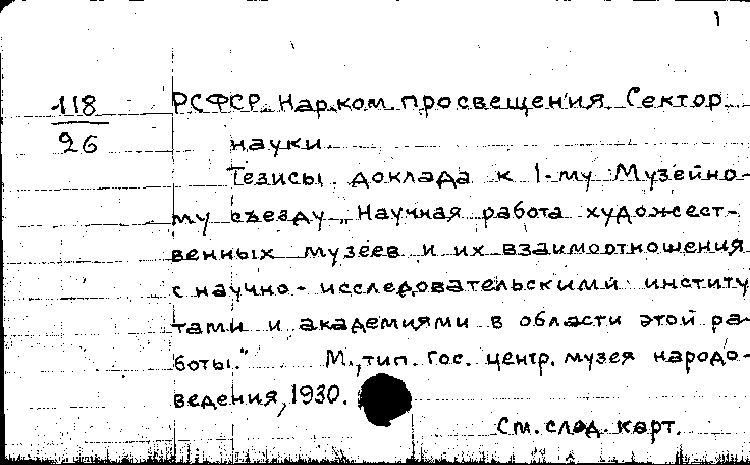 1
118 РСФСР. Нар. ком. просвещения. Сектор
96 науки.
Тезисы доклада к 1-му Музейно-
му съезду „Научная работа художест-
венных музеев и их взаимоотношения
с научно-исследовательскими институ
тами и академиями в области этой ра-
боты." М., тип. Гос. центр. музея народо-
ведения, 1930.
См. след. карт.